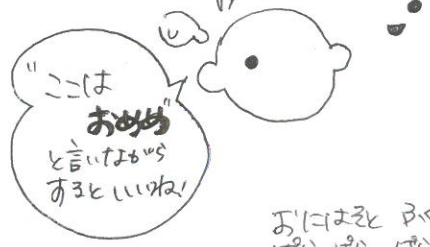 "ここは
おめめ"
と言いながら
するといいね!
おにはそと ふく